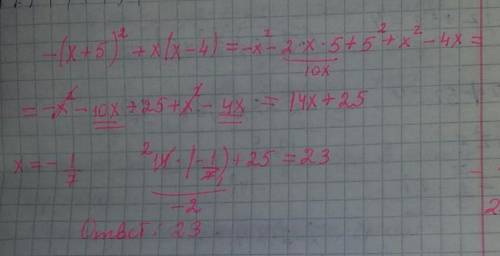 -(x+5)² + x(x-4) = -x² - 2·x·5 + 5² + x² - 4x =
10x
= -x² - 10x + 25 + x² - 4x = 14x + 25
x = -1/7 2 14·(-1/7 1) + 25 = 23
-2
Ответ: 23
2